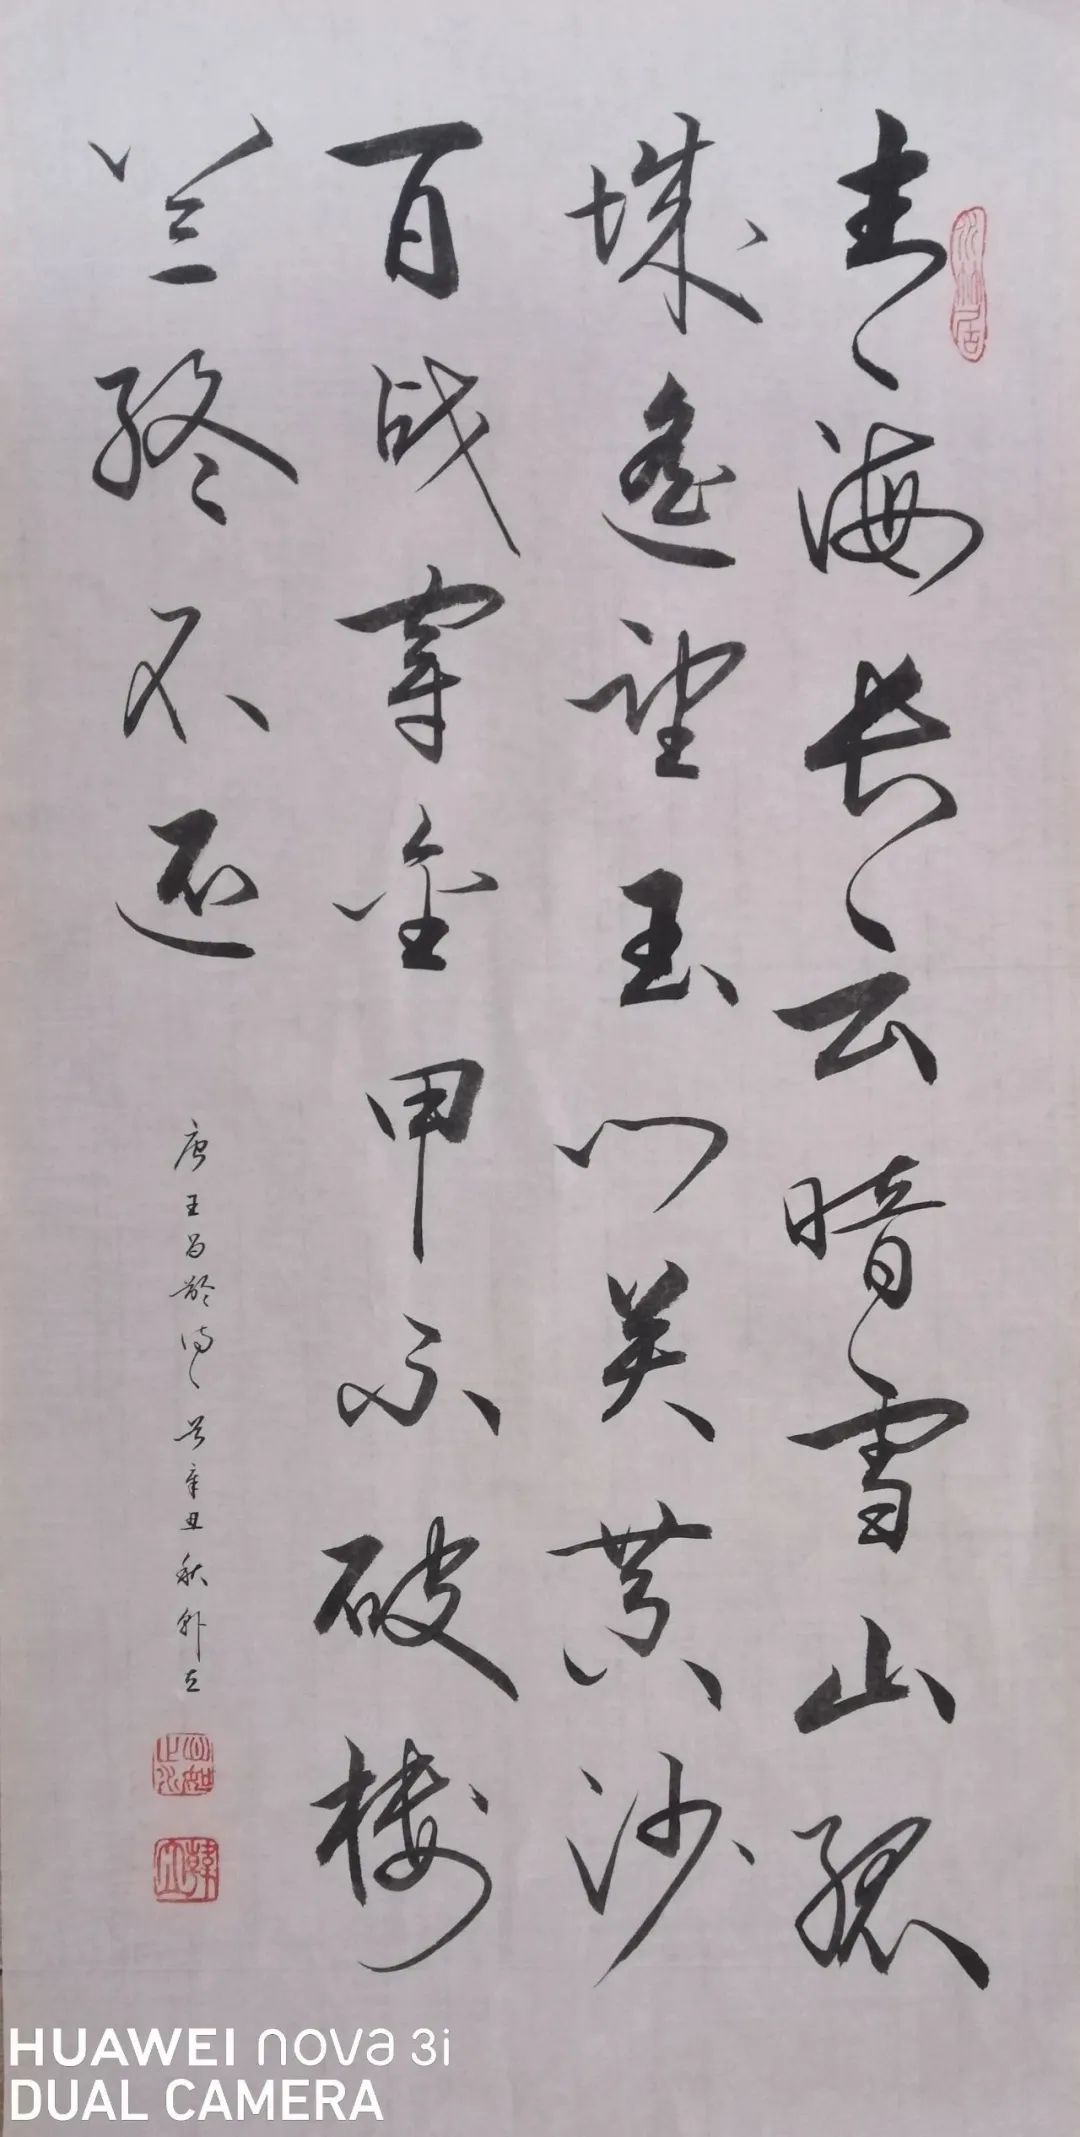 青海长云暗雪山孤
城遥望玉门关黄沙
百战穿金甲不破楼
兰终不还
唐王昌龄诗一首辛丑秋韩立
心如止水
韩立
HUAWEI nova 3i
DUAL CAMERA